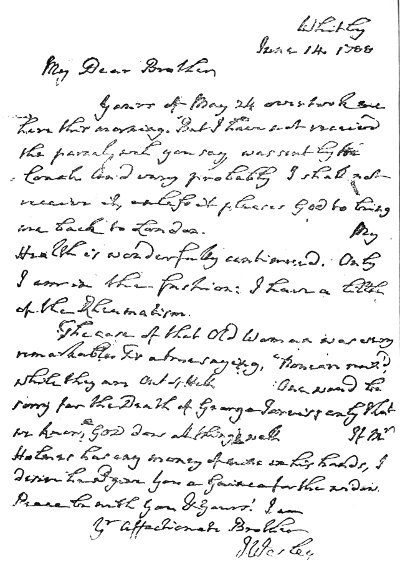 Whitby
June 14. 1788
My Dear Brother,
Yours of May 24 overtook me
here this morning. But I have not received
the parcel, wch you say, was sent by the
Coach. And very probably I shall not
receive it, unless it pleases God to bring
me back to London. My
Health is wonderfully continued. Only
I am in the fashion: I have a little
of the Rheumatism.
The case of that Old Woman was very
remarkable. It is a true saying, "None are
while they are out of Hell. One woud be
sorry for the Death of George only that
we know, God does all things well. If Mr
Holmes has any money of mine in his hands, I
desire he wd give You a Guinea for the widow.
Peace be with You & Yours! I am
Yr Affectionate Brother
J Wesley